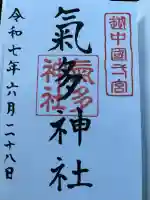 越中國一宮
氣多神社
氣多神社
令和七年六月二十八日